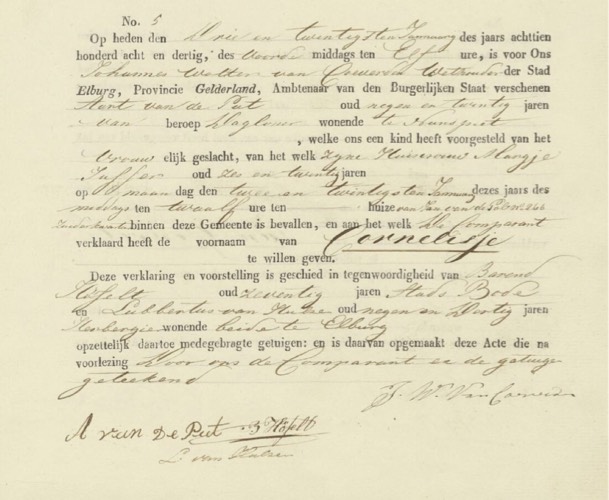 No. 5
Op heden den Drie en twintigsten Januarij des jaars achttien
honderd acht en dertig, des voorde middags ten Elf ure, is voor Ons
Johannes Wolter van Coeverden Wethouder der Stad
Elburg, Provincie Gelderland, Ambtenaar van den Burgerlijken Staat verschenen
Aart van de Put oud negen en twintig jaren
van beroep Daglooner wonende te
, welke ons een kind heeft voorgesteld van het
Vrouw elijk geslacht, van het welk zyne Huisvrouw Marrigje
oud zes en twintig jaren
op maan dag den twee en twintigsten Januarij dezes jaars des
middags ten twaalf ure ten huize van
binnen deze Gemeente is bevallen, en aan het welk De Comparant
verklaard heeft de voornaam van Cornelisje
te willen geven.
Deze verklaring en voorstelling is geschied in tegenwoordigheid van Barend
Höfelt oud zeventig jaren Stads Bode
en Lubbertus van Hulzen oud negen en Dertig jaren
Herbergier wonende beide te Elburg
opzettelijk daartoe medegebragte getuigen: en is daarvan opgemaakt deze Acte die na
voorlezing Door ons de Comparant en de getuige
geteekend
J. W. Van Coeverden
A van De Put B Höfelt
L van Hulzen